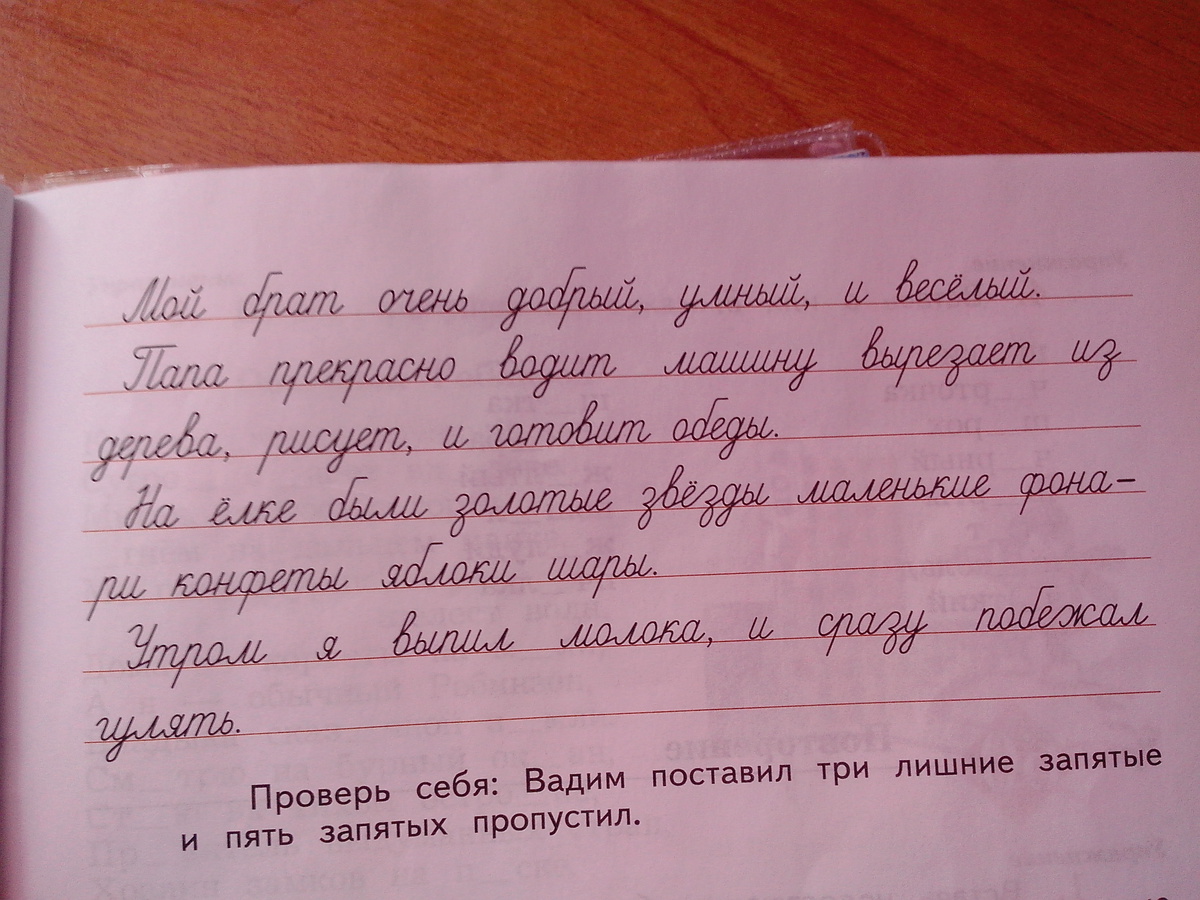 Мой брат очень добрый, умный, и весёлый.
Папа прекрасно водит машину вырезает из
дерева, рисует, и готовит обеды.
На ёлке были золотые звёзды маленькие фона-
ри конфеты яблоки шары.
Утром я выпил молока, и сразу побежал
гулять.
Проверь себя: Вадим поставил три лишние запятые
и пять запятых пропустил.